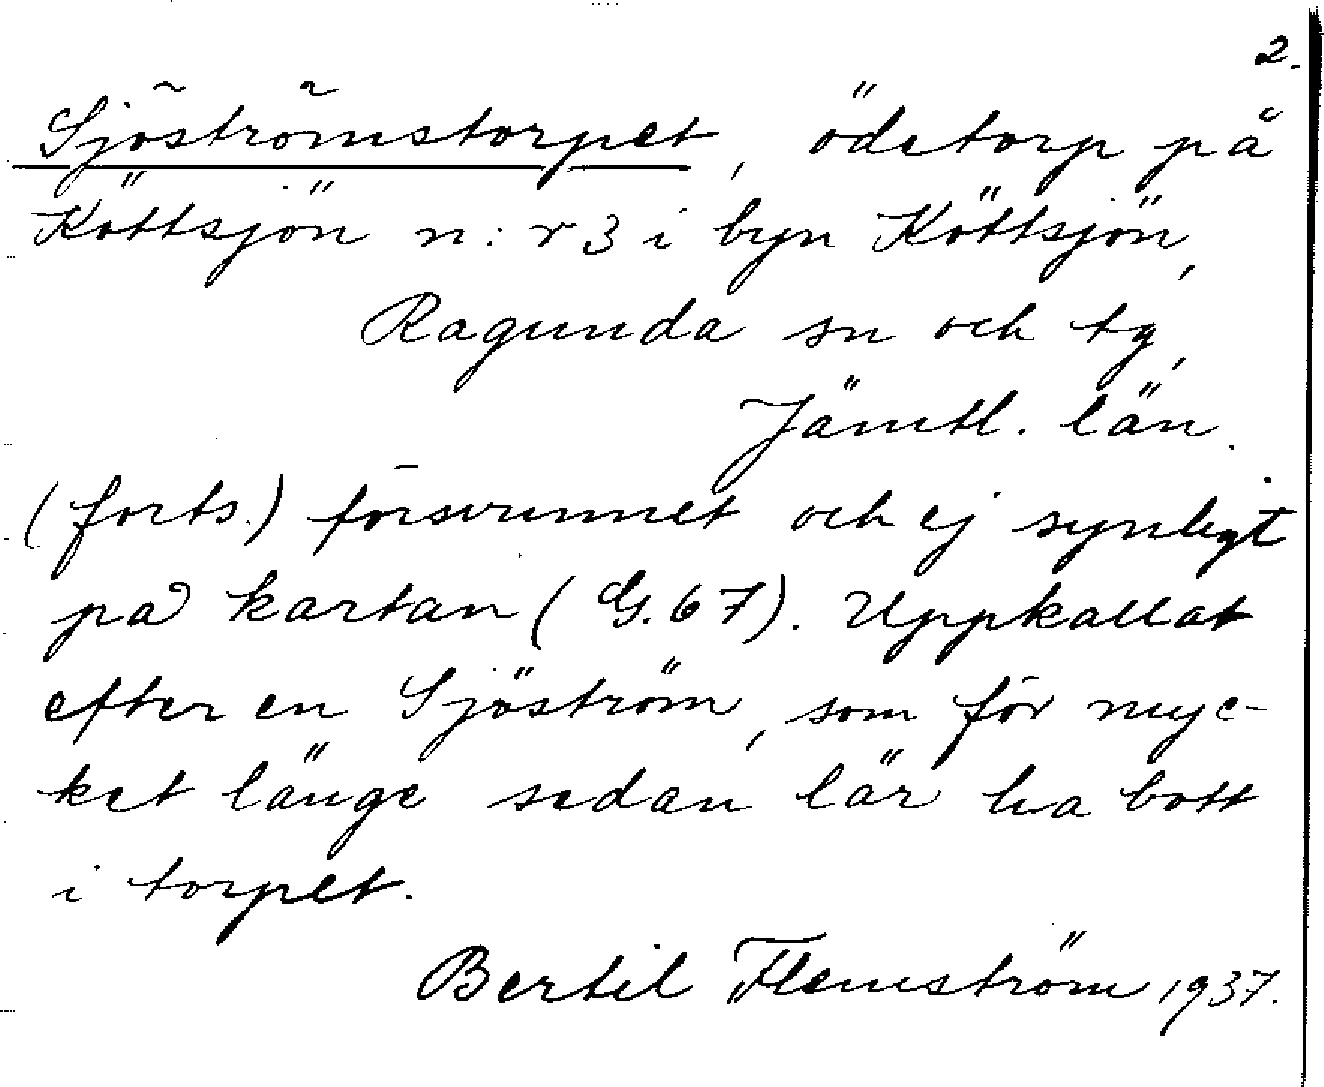 2.
Sjöströmstorpet, ödetorp på
Köttsjön n:r 3 i byn Köttsjön,
Ragunda sn och tg,
Jämtl. län.
(forts.) försvunnet och ej synligt
på kartan (G.67). Uppkallat
efter en Sjöström, som för myc-
ket länge sedan lär ha bott
i torpet.
Bertil Flemström 1937.